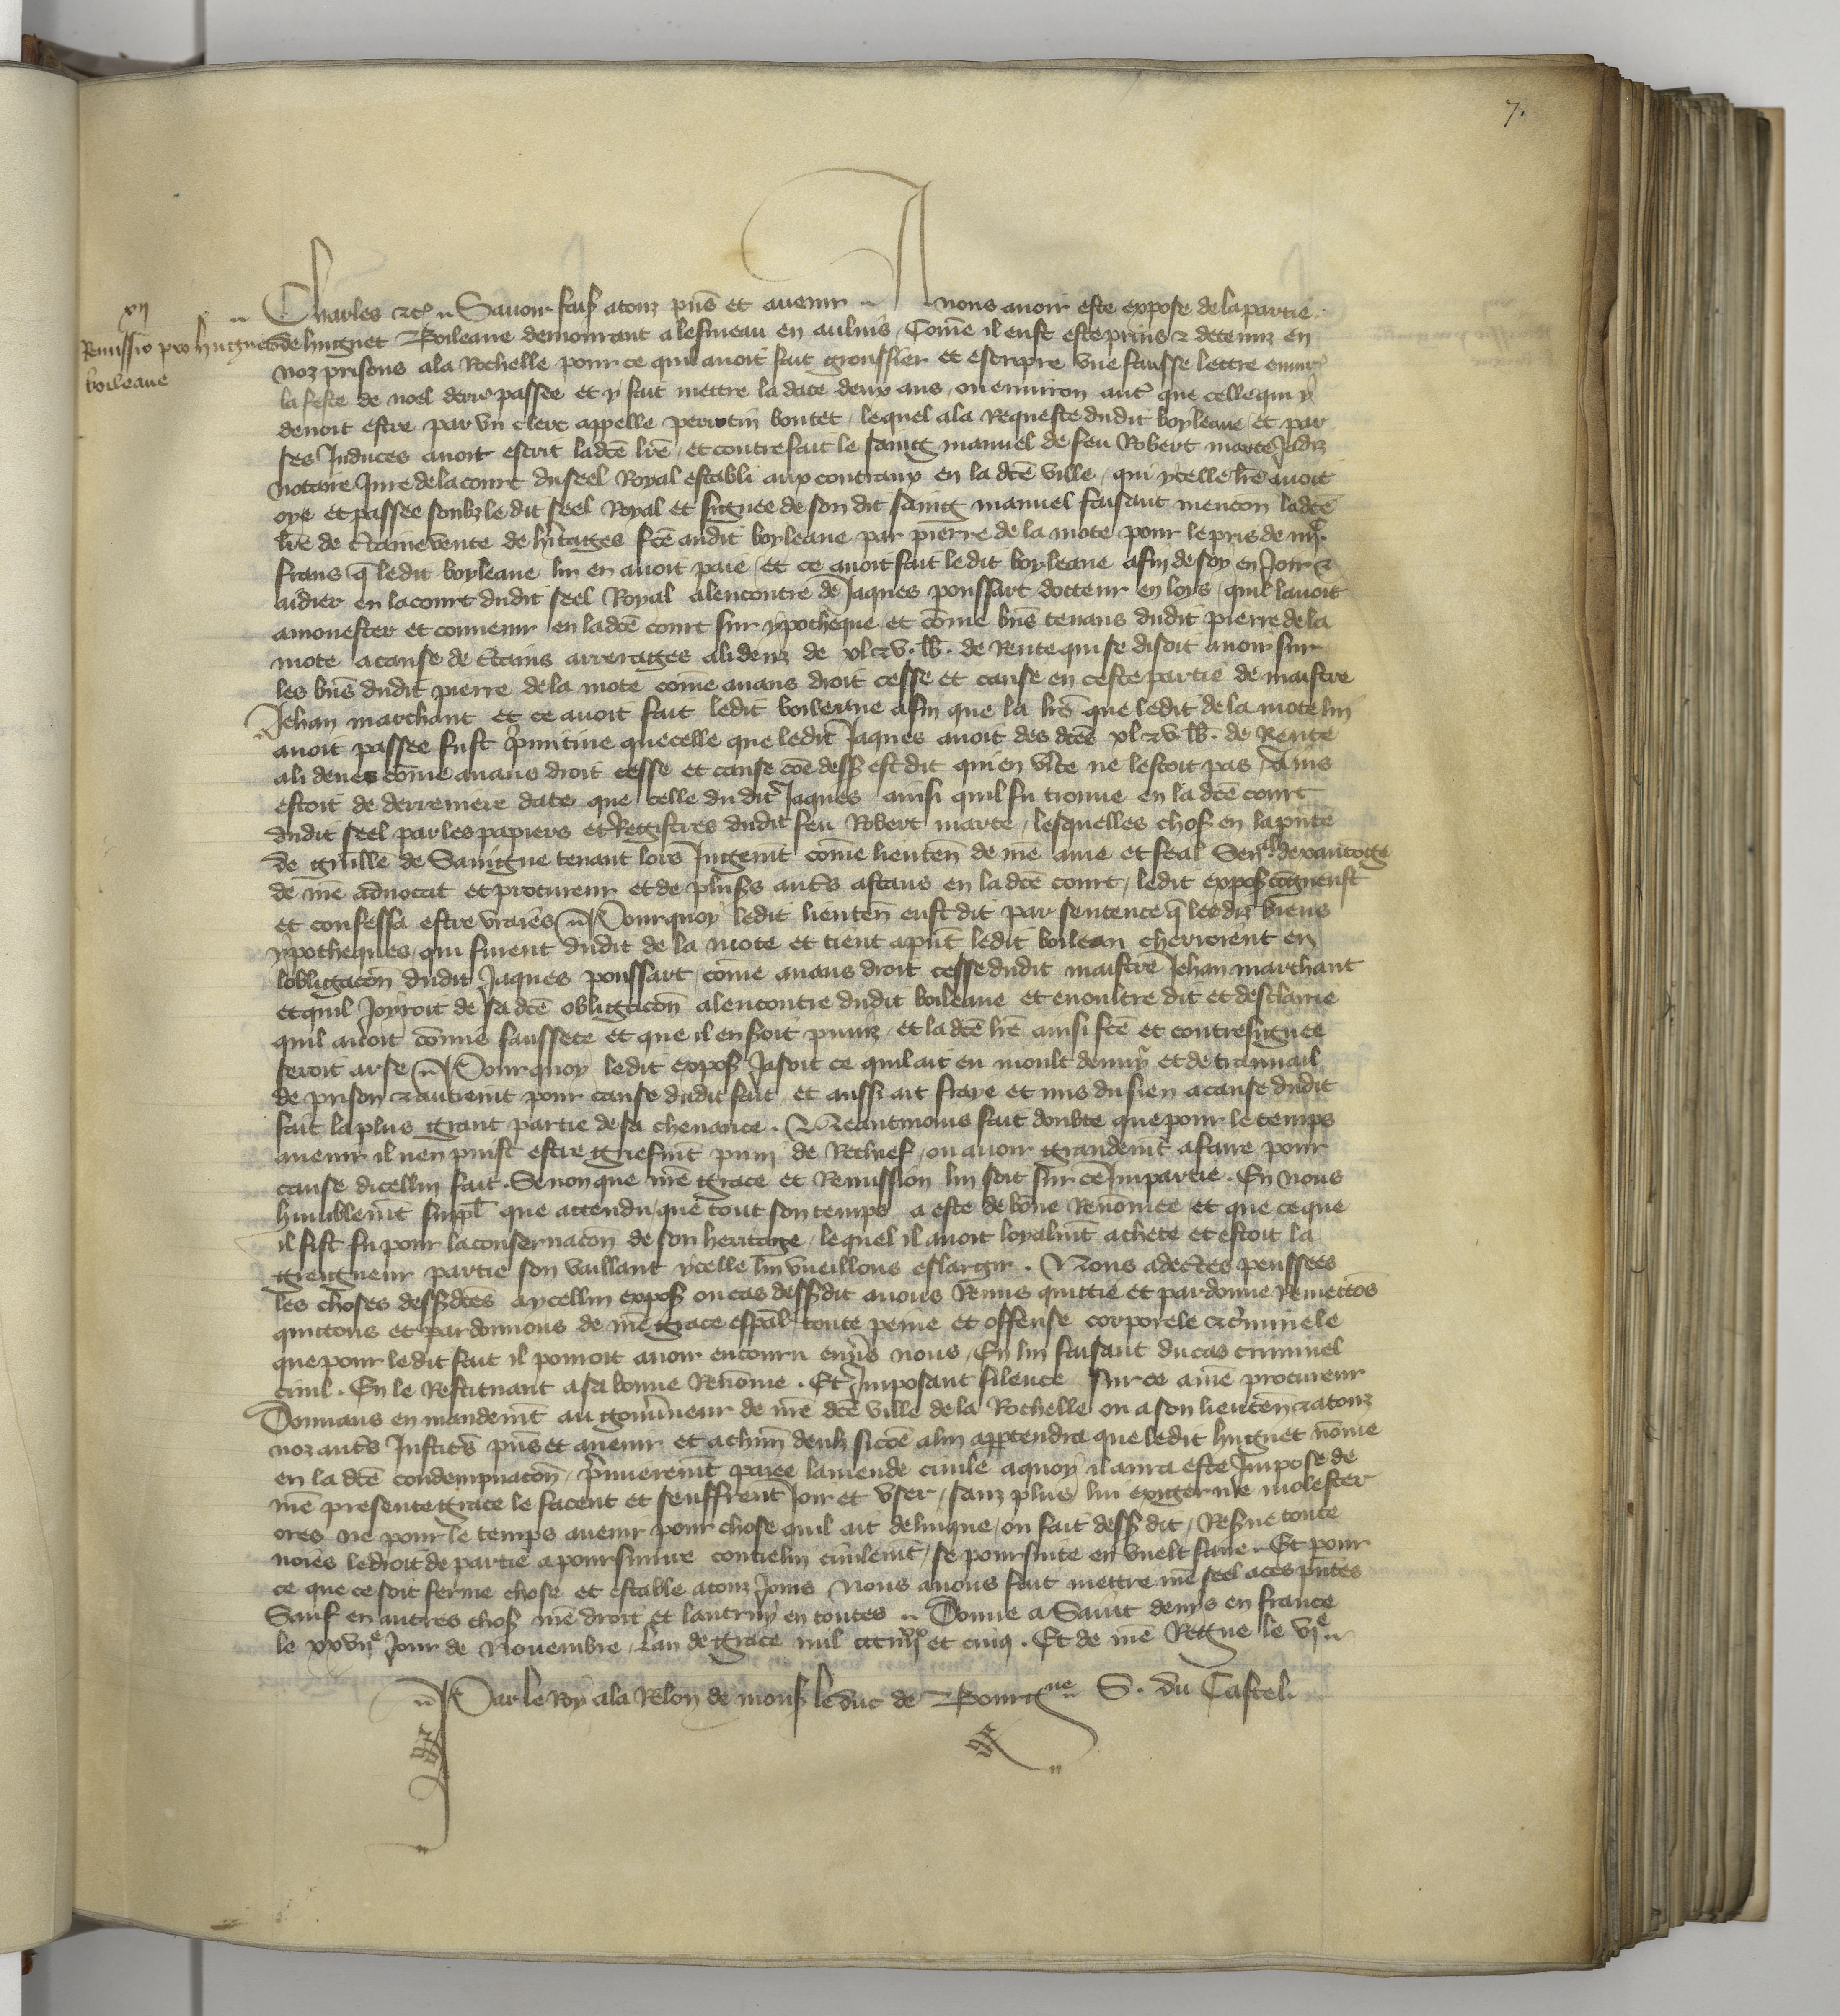 7.
xij
Remissio pro hugueto
boileaue
Charles etc. Savoir fais̃ a touz pñs et avenir A nous avoir este expose de la partie
de huguet Boileaue demourant a lesmeau en aulnis, Com̃e il eust este prins et detenuz en
noz prisons a la Rochelle pour ce quil avoit fait groussier et escripre une fausse lettre
la feste de noel derr̃ passee et y fait mettre la date deux ans ou environ aut̃ que celle qui y
devoit estre par un clerc appelle perrotin boutet, lequel a la Requeste dudit boyleaue et par
ses Induces avoit escrit la dc̃e lr̃e, et contrefait le saing manuel de feu Robert marte Jadiz
notaire Jure de la court du seel Royal establi aux contraux en la dc̃e ville, qui ycelle lr̃e avoit
oye et passee soubz le dit seel Royal et signee de son dit saing manuel faisant mencõn la dc̃e
lr̃e de c̃taine vente de h̃itages fc̃e audit boyleaue par pierre de la mote pour le pris de
frans q̃ ledit boyleaue lui en avoit paie, et ce avoit fait ledit boyleaue afin de soy en Joir et
aidier en la court dudit seel Royal alencontre de Jaques poussart docteur en loys, quil lavoit
amonester et convenir en la dc̃e court sur ypotheque et com̃e bñs tenans dudit pierre de la
mote a cause de c̃tains arrerages a li deuz de xl et v. lb. de Rente qui se disoit avoir sur
les bñs dudit pierre de la mote com̃e aians droit cesse et cause en ceste partie de maistre
Jehan marchant et ce avoit fait ledit boileaue afin que la lr̃e que ledit de la mote lui
avoit passee fust p̃mitive que celle que ledit Jaques avoit des dc̃es xl et v lb. de Rente
a li deues com̃e aians droit cesse et cause cõe dess̃ est dit qui en ṽite ne lestoit pas, Ains
estoit de derreniere date que celle du dit Jaques ainsi quil fu trouve en la dc̃e court
dudit seel par les papiers et Registres dudit feu Robert marte, lesquelles chos̃ en la pñce
de guille de Savigne tenant lors Jugemt̃ com̃e lieuten̄ de nr̃e ame et feal Seneˡ de xanctoge
de nr̃e advocat et procureur et de plus̃s aut̃s estans en la dc̃e court, ledit expos̃ cogneust
et confessa estre vraies Pourquoy ledit lieuten̄ eust dit par sentence q̃ lesdiz biens
ypotheques, qui furent dudit de la mote et tient apñt ledit boileau cherroient en
lobligacõn dudit Jaques poussart com̃e aians droit cesse dudit maistre Jehan marchant
et quil Joyroit de sa dc̃e obligacõn alencontre dudit boileaue et en oultre dit et desclaire
quil avoit com̃is faussete et que il en soit puniz, et la dc̃e lr̃e ainsi fc̃e et contresignee
seroit arse Pourquoy ledit expos̃ Jasoit ce quil ait eu moult dennuy et de travail
de prison et autremt̃ pour cause dudit fait et aussi ait fraye et mis du sien a cause dudit
fait la plus grant partie de sa chevance. Neantmoins fait doubte que pour le temps
avenir il nen puist estre griefmt̃ puni de Rechief, ou avoir grandemt̃ afaire pour
cause dicellui fait. Se non que nr̃e grace et Remission lui soit sur ce Impartie. En nous
humblemt̃ supl̃ que attendu que tout son temps a este de bõne Renõmee et que ce que
il fist fu pour la conservacõn de son heritage, lequel il avoit loyalmt̃ achete et estoit la
greigneur partie son vaillant ycelle lui vueillons eslargir. Nous adecertes pensees
les choses dess̃ dc̃es a ycellui expos̃ ou cas dess̃dit avons Remis quittie et pardonne Remectõs
quictons et pardonnons de nr̃e grace esp̃al toute peine et offense corporele et c̃iminele
que pour ledit fait il pouroit avoir encouru env̂s nous, En lui faisant du cas criminel
civil. En le Restituant a sa bonne Renõme. Et Imposant silence sur ce a nr̃e procureur
Donnans en mandemt̃ au gouv̂neur de nr̃e dc̃e ville de la Rochelle ou a son lieuten̄ et a touz
noz aut̃s Justic̃s pñs et avenir et a chũn deulz si cõe a lui app̃tendra que ledit huguet nõme
en la dc̃e condempnacõn, p̃mieremt̃ paiee lamende civile a quoy il aura este Impose de
nr̃e presente grace le facent et seuffrent Joir et user, sanz plus lui exiger ne molester
ores ne pour le temps avenir pour chose quil ait delinque, ou fait dess̃ dit, Res̃ve toute
voies le droit de partie a poursuivre contre lui civilemt̃, se poursuite en vuelt faire. Et pour
ce que ce soit ferme chose et estable a touz Jours Nous avons fait mettre nr̃e seel a ces pñtes
Sauf en autres chos̃ nr̃e droit et lautruy en toutes. Donne a Saint denys en france
le xxviie Jour de Novembre, Lan de grace mil ccciiiixx et cinq. Et de nr̃e Regne le vie
Par le Roy a la Relon de mons̃ le duc de Bourgne S. du Castel.